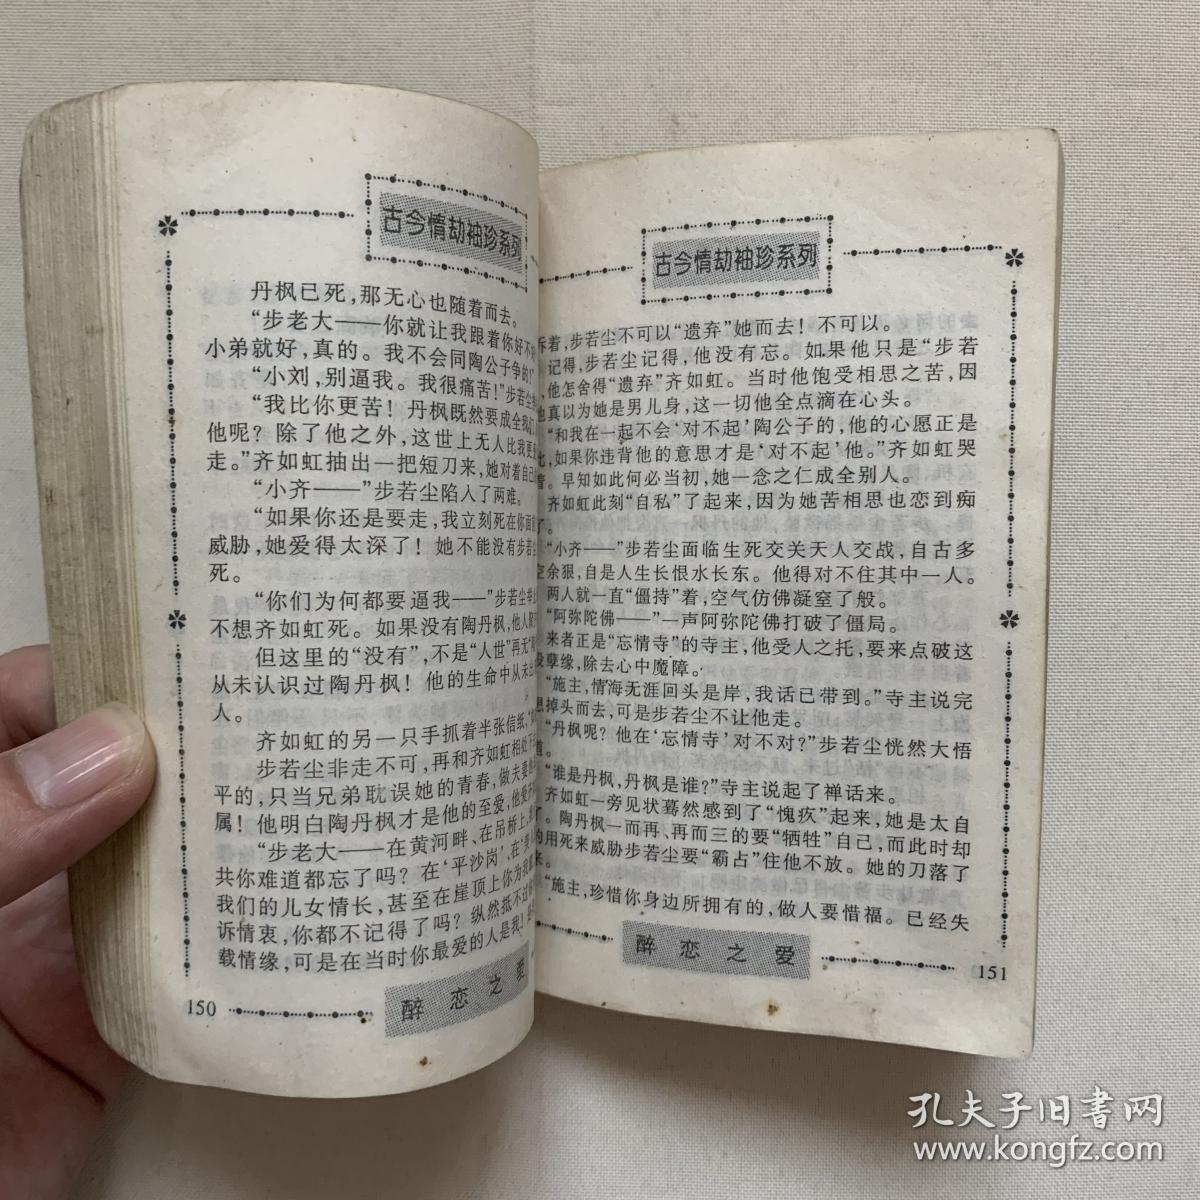 古今情劫袖珍系列
丹枫已死，那无心也随着而去。
“步老大——你就让我跟着你好不
小弟就好，真的。我不会同陶公子争的！”
“小刘，别逼我。我很痛苦！”步若尘
“我比你更苦！丹枫既然要成全我
他呢？除了他之外，这世上无人比我更
走。”齐如虹抽出一把短刀来，她对着自己
“小齐——”步若尘陷入了两难。
“如果你还是要走，我立刻死在你面
威胁，她爱得太深了！她不能没有步若
死。
“你们为何都要逼我——”步若尘
不想齐如虹死。如果没有陶丹枫，他人
但这里的“没有”，不是“人世”再无“
从未认识过陶丹枫！他的生命中从未
人。
齐如虹的另一只手抓着半张信纸，“
步若尘非走不可，再和齐如虹相处下
平的，只当兄弟耽误她的青春，做夫妻
属！他明白陶丹枫才是他的至爱，他
“步老大——在黄河畔、在吊桥上、
共你难道都忘了吗？在‘平沙岗’、在‘
我们的儿女情长，甚至在崖顶上你为我
诉情衷，你都不记得了吗？纵然抵不过
载情缘，可是在当时你最爱的人是我！
150
醉恋之爱
古今情劫袖珍系列
斥着，步若尘不可以“遗弃”她而去！不可以。
记得，步若尘记得，他没有忘。如果他只是“步若
他怎舍得“遗弃”齐如虹。当时他饱受相思之苦，因
真以为她是男儿身，这一切他全点滴在心头。
“和我在一起不会‘对不起’陶公子的，他的心愿正是
，如果你违背他的意思才是‘对不起’他。”齐如虹哭
。早知如此何必当初，她一念之仁成全别人。
齐如虹此刻“自私”了起来，因为她苦相思也恋到痴
了。
“小齐——”步若尘面临生死交关天人交战，自古多
空余狠，自是人生长恨水长东。他得对不住其中一人。
两人就一直“僵持”着，空气仿佛凝窒了般。
“阿弥陀佛——”一声阿弥陀佛打破了僵局。
来者正是“忘情寺”的寺主，他受人之托，要来点破这
孽缘，除去心中魔障。
“施主，情海无涯回头是岸，我话已带到。”寺主说完
想掉头而去，可是步若尘不让他走。
“丹枫呢？他在‘忘情寺’对不对？”步若尘恍然大悟
道。
“谁是丹枫，丹枫是谁？”寺主说起了禅话来。
齐如虹一旁见状蓦然感到了“愧疚”起来，她是太自
了。陶丹枫一而再、再而三的要“牺牲”自己，而此时却
用死来威胁步若尘要“霸占”住他不放。她的刀落了
长。
“施主，珍惜你身边所拥有的，做人要惜福。已经失
醉恋之爱
151
孔夫子旧书网
www.kongfz.com